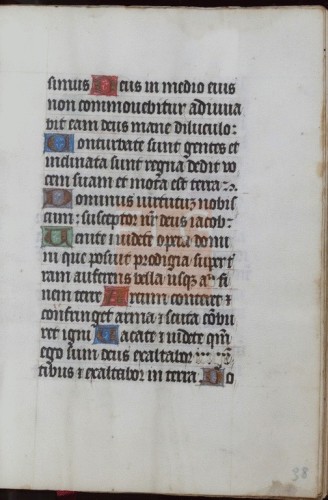 simus Deus in medio eius
non commovebitur adiuva
bit eam deus mane diluculo:
Conturbate sunt gentes et
inclinata sunt regna dedit vo
cem suam et mota est terra:
Dominus virtutum nobis
cum: susceptor nr deus iacob:
Uenite & videte opera domi
ni que posuit prodigia super t
ram auferens bella usqz ad fi
nem terre Arcum conteret &
confringet arma & scuta cōbu
ret igni Uacate & videte qm̄
ego sum deus exaltabor in
tibus & exaltabor in terra Do
38